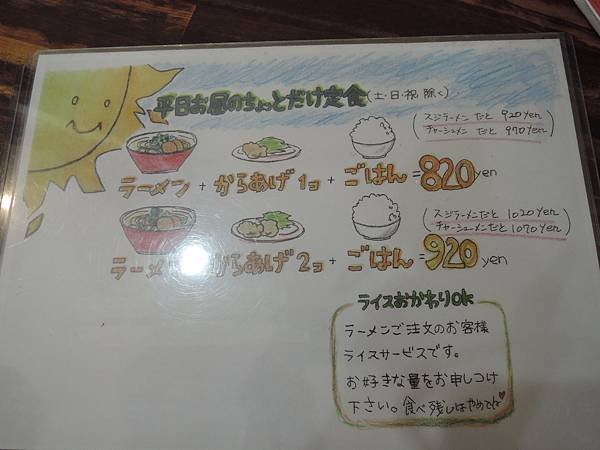 平日お昼のちょっとだけ定食(土・日・祝 除く)
(スジラーメン だと 920yen
チャーシューメン だと 970yen)
ラーメン + からあげ 1コ + ごはん = 820yen
(スジラーメンだと 1020yen
チャーシューメンだと 1070yen)
ラーメ からあげ 2コ + ごはん = 920yen
ライスおかわりOK
ラーメンご注文のお客様
ライスサービスです。
お好きな量をお申しつけ
下さい。食べ残しはやめてね♥